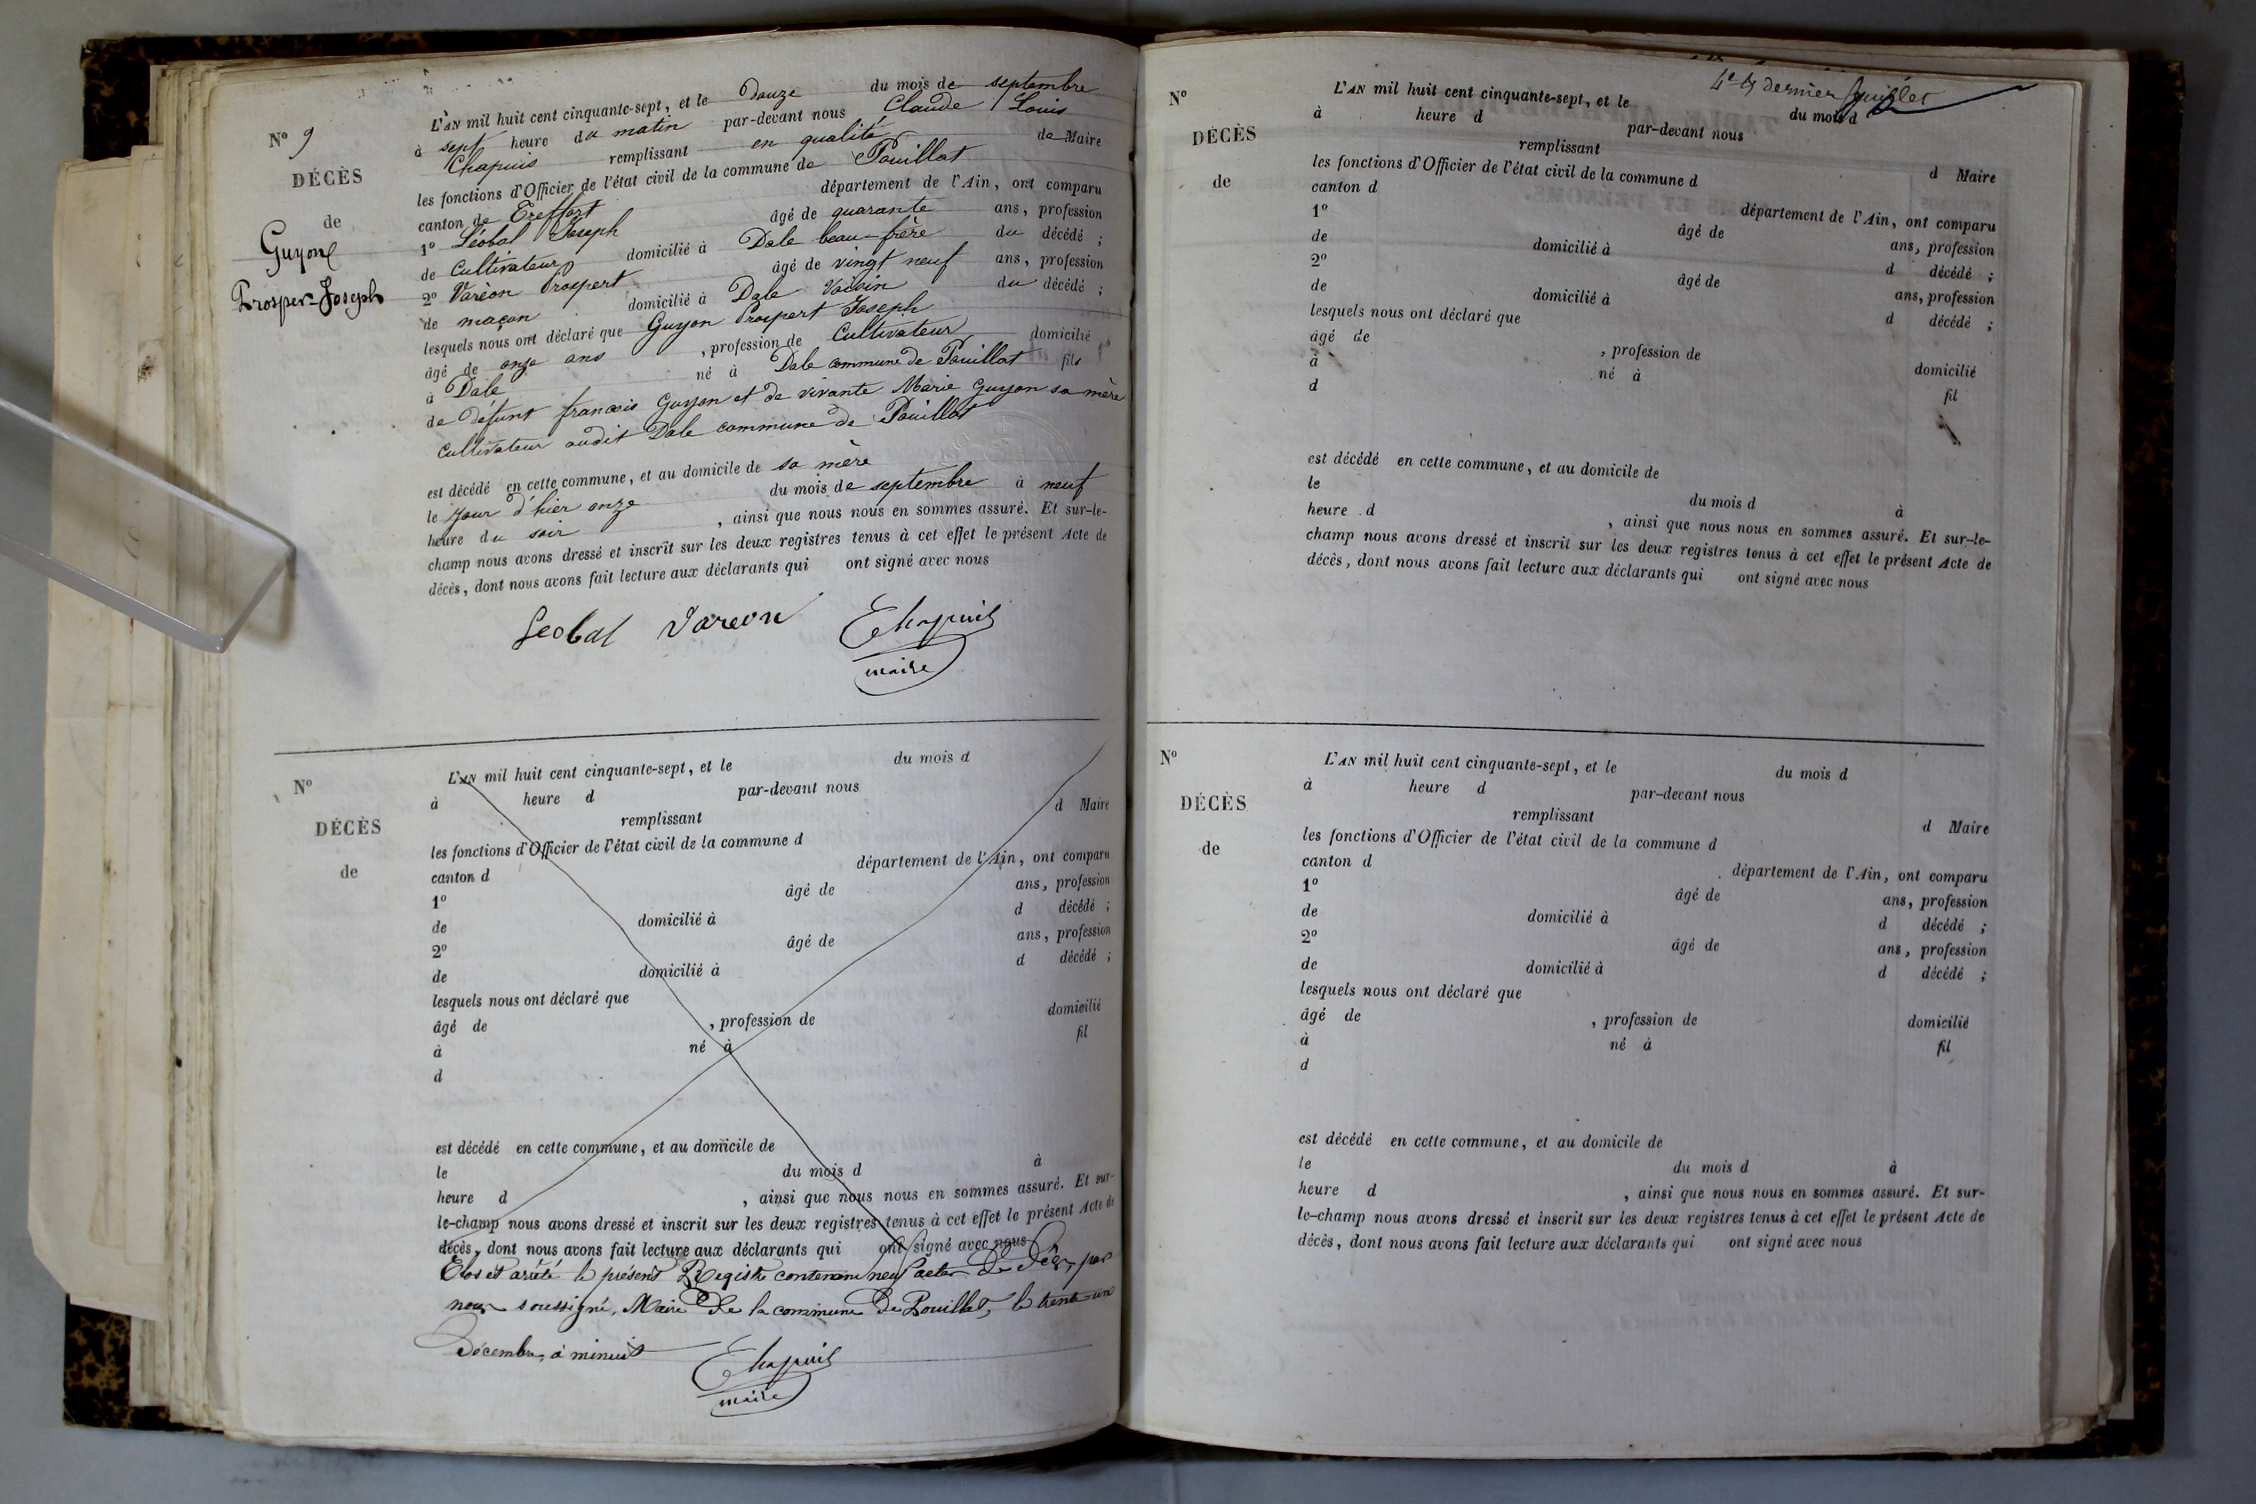 N° 9
DÉCÈS
de
Guyon
Prosper-Joseph
L'AN mil huit cent cinquante-sept, et le Douze du mois de septembre
à sept heure du matin par-devant nous Claude Louis
Chapuis remplissant en qualité de Maire
les fonctions d'Officier de l'état civil de la commune de Pouillat
canton de Treffort département de l'Ain, ont comparu
1° Léobal Joseph âgé de quarante ans, profession
de Cultivateur domicilié à Dale beau-frère du décédé ;
2° Varéon Prospert âgé de vingt neuf ans, profession
de maçon domicilié à Dale Voisin du décédé ;
lesquels nous ont déclaré que Guyon Prospert Joseph
âgé de onze ans , profession de Cultivateur domicilié
à Dale né à Dale commune de Pouillat fils
de défunt françois Guyon et de vivante Marie Guyon sa mère
cultivateur audit Dale commune de Pouillat
est décédé en cette commune, et au domicile de sa mère
le jour d'hier onze du mois de septembre à neuf
heure du soir , ainsi que nous nous en sommes assuré. Et sur-le-
champ nous avons dressé et inscrit sur les deux registres tenus à cet effet le présent Acte de
décès, dont nous avons fait lecture aux déclarants qui ont signé avec nous
Leobal Vareon Chapuis
maire
N°
DÉCÈS
de
L'AN mil huit cent cinquante-sept, et le du mois d
à heure d par-devant nous
remplissant d Maire
les fonctions d'Officier de l'état civil de la commune d
canton d département de l'Ain, ont comparu
1° âgé de ans, profession
de domicilié à d décédé ;
2° âgé de ans, profession
de domicilié à d décédé ;
lesquels nous ont déclaré que
âgé de , profession de domicilié
à né à fil
d
est décédé en cette commune, et au domicile de
le du mois d à
heure d , ainsi que nous nous en sommes assuré. Et sur-
le-champ nous avons dressé et inscrit sur les deux registres tenus à cet effet le présent Acte de
décès, dont nous avons fait lecture aux déclarants qui ont signé avec nous
Clos et arrêté le présent Registre contenant neuf actes de Décès, par
nous soussigné, Maire de la commune de Pouillat, le trente un
Décembre, à minuit
Chapuis
maire
4e & dernier feuillet
N°
DÉCÈS
de
L'AN mil huit cent cinquante-sept, et le du mois d
à heure d par-devant nous
remplissant d Maire
les fonctions d'Officier de l'état civil de la commune d
canton d département de l'Ain, ont comparu
1° âgé de ans, profession
de domicilié à d décédé ;
2° âgé de ans, profession
de domicilié à d décédé ;
lesquels nous ont déclaré que
âgé de , profession de domicilié
à né à fil
d
est décédé en cette commune, et au domicile de
le du mois d à
heure d , ainsi que nous nous en sommes assuré. Et sur-le-
champ nous avons dressé et inscrit sur les deux registres tenus à cet effet le présent Acte de
décès, dont nous avons fait lecture aux déclarants qui ont signé avec nous
N°
DÉCÈS
de
L'AN mil huit cent cinquante-sept, et le du mois d
à heure d par-devant nous
remplissant d Maire
les fonctions d'Officier de l'état civil de la commune d
canton d département de l'Ain, ont comparu
1° âgé de ans, profession
de domicilié à d décédé ;
2° âgé de ans, profession
de domicilié à d décédé ;
lesquels nous ont déclaré que
âgé de , profession de domicilié
à né à fil
d
est décédé en cette commune, et au domicile de
le du mois d à
heure d , ainsi que nous nous en sommes assuré. Et sur-
le-champ nous avons dressé et inscrit sur les deux registres tenus à cet effet le présent Acte de
décès, dont nous avons fait lecture aux déclarants qui ont signé avec nous